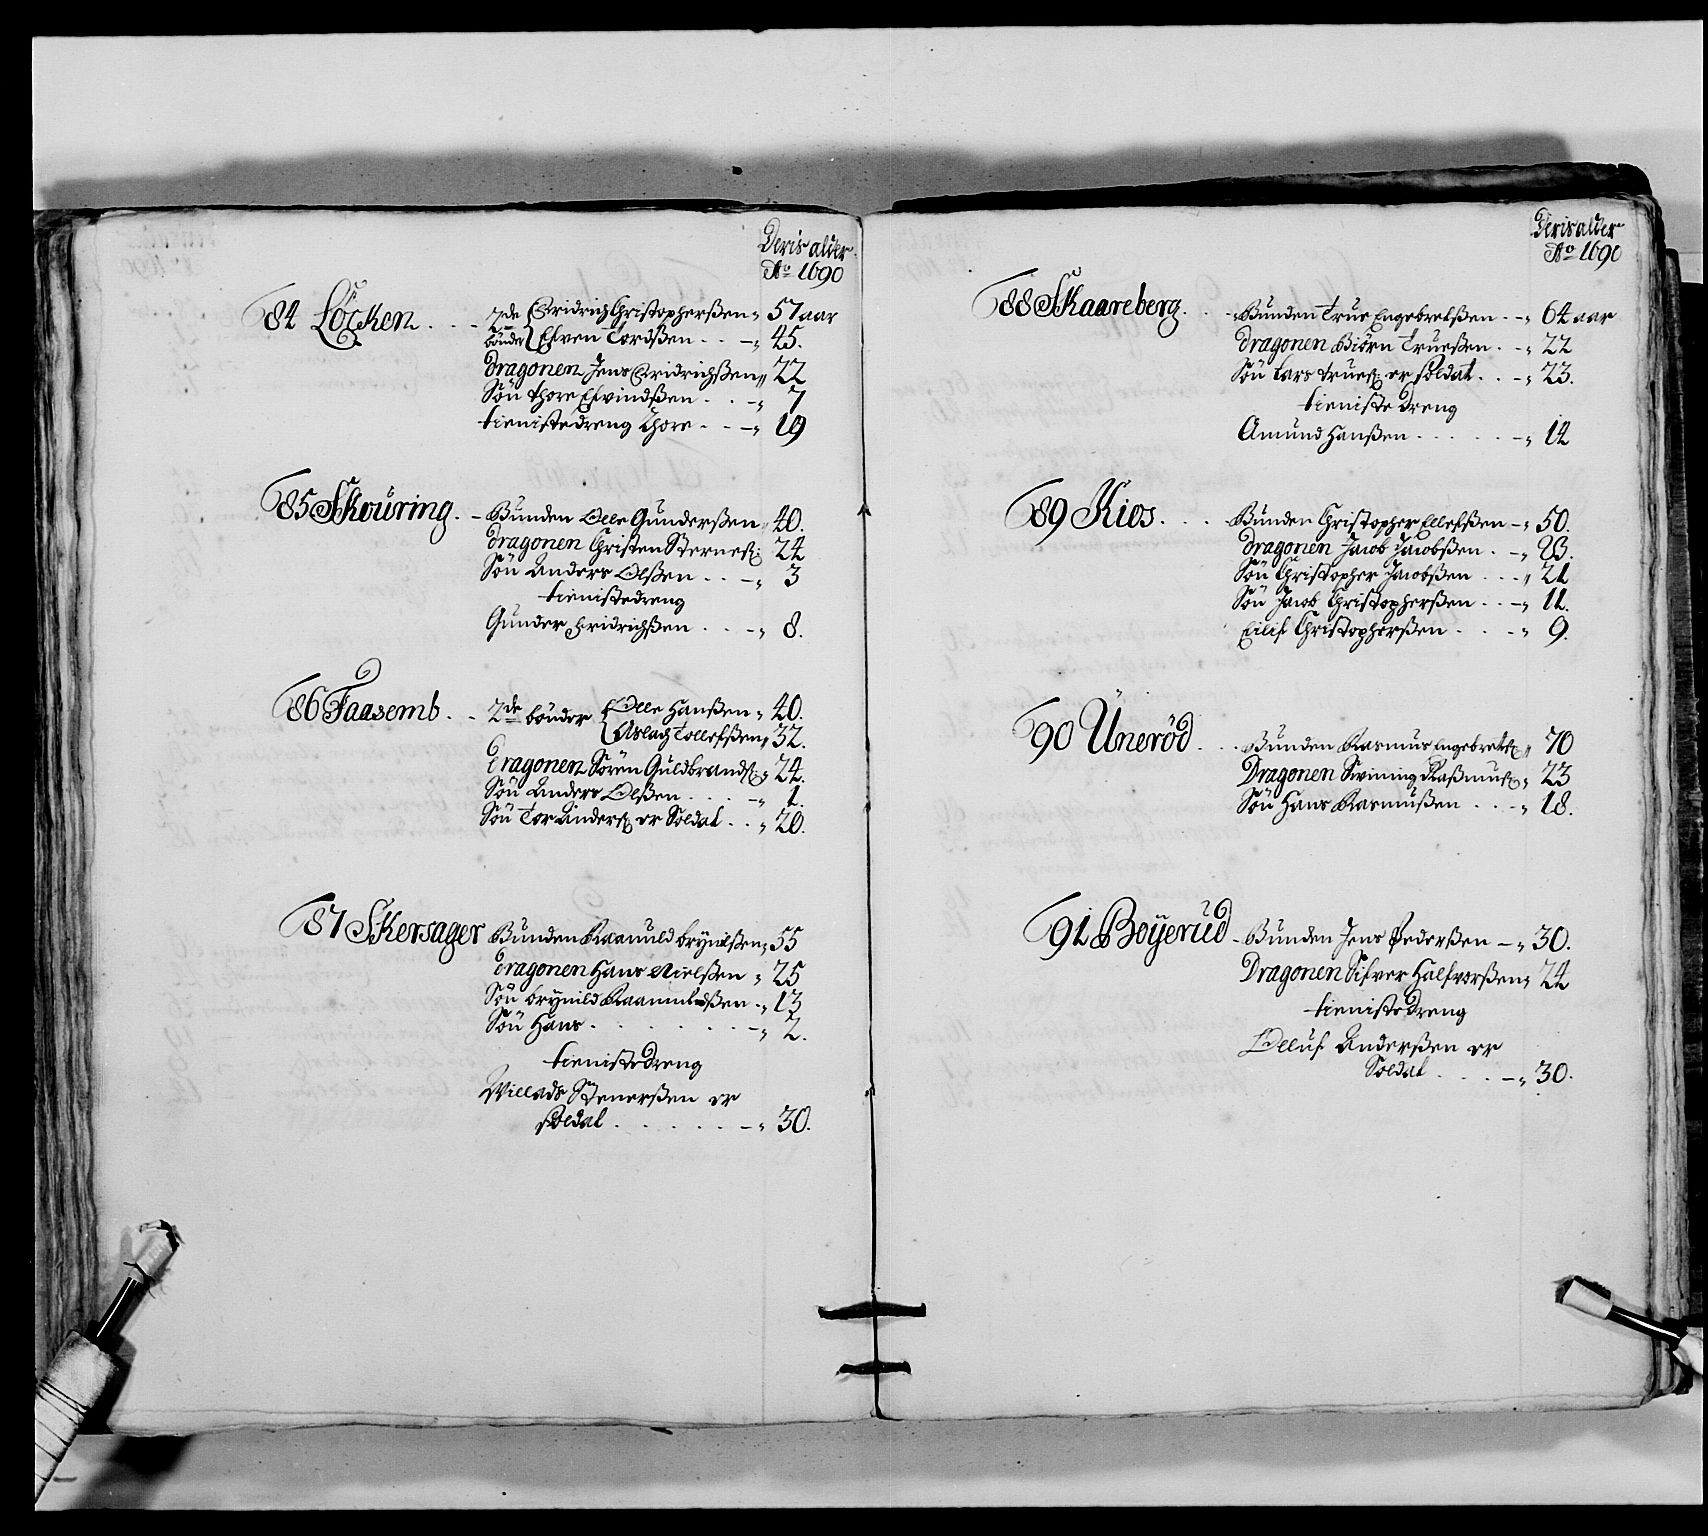 Deris alder
Ao 1690
84 Löcken . . . 2de bönder { Fridrich Christopherßen „ 57 aar
Efven Tordßen . . — „ 45.
Dragonen Jens Fridrichßen „ 22
Sön Thore Efvindßen . . . — „ 7
tienistedreng Thore . . — „ 19
85 Skouring . — Bunden Olle Gunderßen „ 40.
Dragonen Christen Sterneß: 24
Sön Anders Olßen . . . — „ 3
tienistedreng
Gunder Fridrichßen . . . — „ 8.
86 Faasemb . . . 2de bönder { Olle Hanßen „ 40.
Aslach Tollefßen „ 32.
Dragonen Sören Guldbrandß „ 24.
Sön Anders Olßen . . . . — „ 1.
Sön Tor Anderß er Soldat . . „ 20.
87 Skersager Bunden Raamuld brynilßen „ 55
Dragonen Hans Nielßen „ 25
Sön brynild Raamuldßen . „ 13
Sön Hans . . . . . . . — „ 2.
tienistedreng
Willads Stenerßen er
soldat . . . . . . — „ 30.
Deris alder
Ao 1690
88 Skaareberg . . . Bunden True Engebretßen . — „ 64 aar
Dragonen Biörn Trueßen . — „ 22
Sön Lars Trueß er soldat . . — „ 23.
tieniste dreng
Amund Hanßen . . . . . — „ 14
89 Kios . . . . Bunden Christopher Ellefßen — „ 50.
Dragonen Jacob Jacobßen . — „ 23.
Sön Christopher Jacobßen . . . „ 21
Sön Jacob Christopherßen . . — „ 11.
Eilif Christopherßen . . . — „ 9.
90 Uneröd . . . Bunden Rasmus Engebretß „ 70
Dragonen Swining Raßmuß „ 23
Sön Hans Rasmußen . . . — „ 18.
91 Boÿerud — Bunden Jens Pederßen — „ 30.
Dragonen Sifver Halfvorßen „ 24
tienistedreng
Olluf Anderßen er
Soldat . . . . — „ 30.